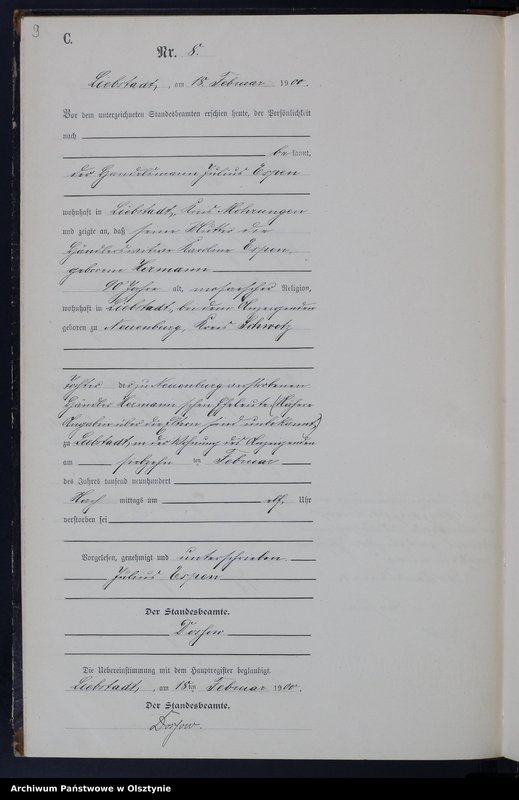 9
C.
Nr. 8.
Liebstadt, am 18. Februar 1900.
Vor dem unterzeichneten Standesbeamten erschien heute, der Persönlichkeit
nach
bekannt,
der Handelsmann Julius
wohnhaft in Liebstadt, Kreis Mohrungen
und zeigte an, daß seine Mutter die
Händlerswitwe Karoline
geborene Hermann
90 Jahre alt, mosaischer Religion,
wohnhaft in Liebstadt, bei dem Anzeigenden
geboren zu Neuenburg, Kreis Schwetz
Tochter der zu Neuenburg verstorbenen
Händler Hermann'schen Eheleute (Nähere
Angaben über die Eltern sind unbekannt)
zu Liebstadt, in der Wohnung des Anzeigenden
am siebzehnten Februar
des Jahres tausend neunhundert
Nachmittags um elf Uhr
verstorben sei
Vorgelesen, genehmigt und unterschrieben.
Julius
Der Standesbeamte.
Die Uebereinstimmung mit dem Hauptregister beglaubigt.
Liebstadt, am 18ten Februar 1900.
Der Standesbeamte.
Archiwum Państwowe w Olsztynie